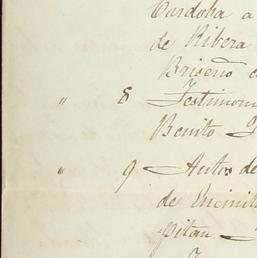 Cordoba a
de Ribera
Briseño e
" 8 Testimon
Benito
" 9 Autos de
de Encinill
pitan